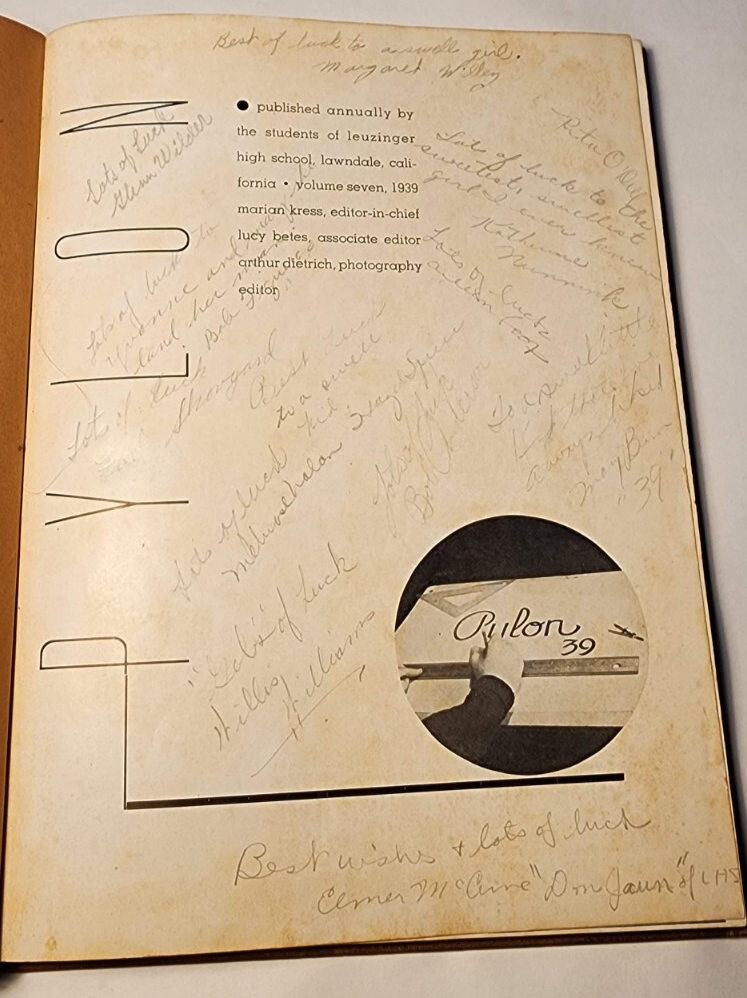 Best of luck to a swell girl.
Margaret Willey
PYLON
● published annually by
the students of leuzinger
high school, lawndale, cali-
fornia • volume seven, 1939
marian kress, editor-in-chief
lucy betes, associate editor
arthur dietrich, photography
editor
Lots of Luck
Glenn Wilder
Rita O'Dell
Lots of luck to the
sweetest, smallest
girl I ever knew
Katherine
Lots of luck
Lots of luck to
Yvonne and
land her man
Bob
Lots of luck
Best Luck
to a swell
kid
Lots of luck
Lots of Luck
Bob
To a swell little
kid that I've
always liked
Mary
"39"
"Gobs" of Luck
Willis
Williams
Pylon
39
Best wishes + lots of luck
Elmer "Don Jaun" of LHS